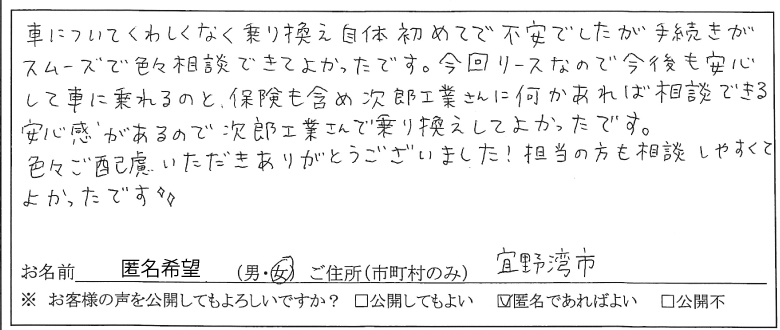 車についてくわしくなく乗り換え自体初めてで不安でしたが手続きが
スムーズで色々相談できてよかったです。今回リースなので今後も安心
して車に乗れるのと、保険も含め次郎工業さんに何かあれば相談できる
安心感があるので次郎工業さんで乗り換えしてよかったです。
色々ご配慮いただきありがとうございました!担当の方も相談しやすくて
よかったです
お名前 匿名希望 (男・女) ご住所(市町村のみ) 宜野湾市
※ お客様の声を公開してもよろしいですか? □公開してもよい ☑匿名であればよい □公開不